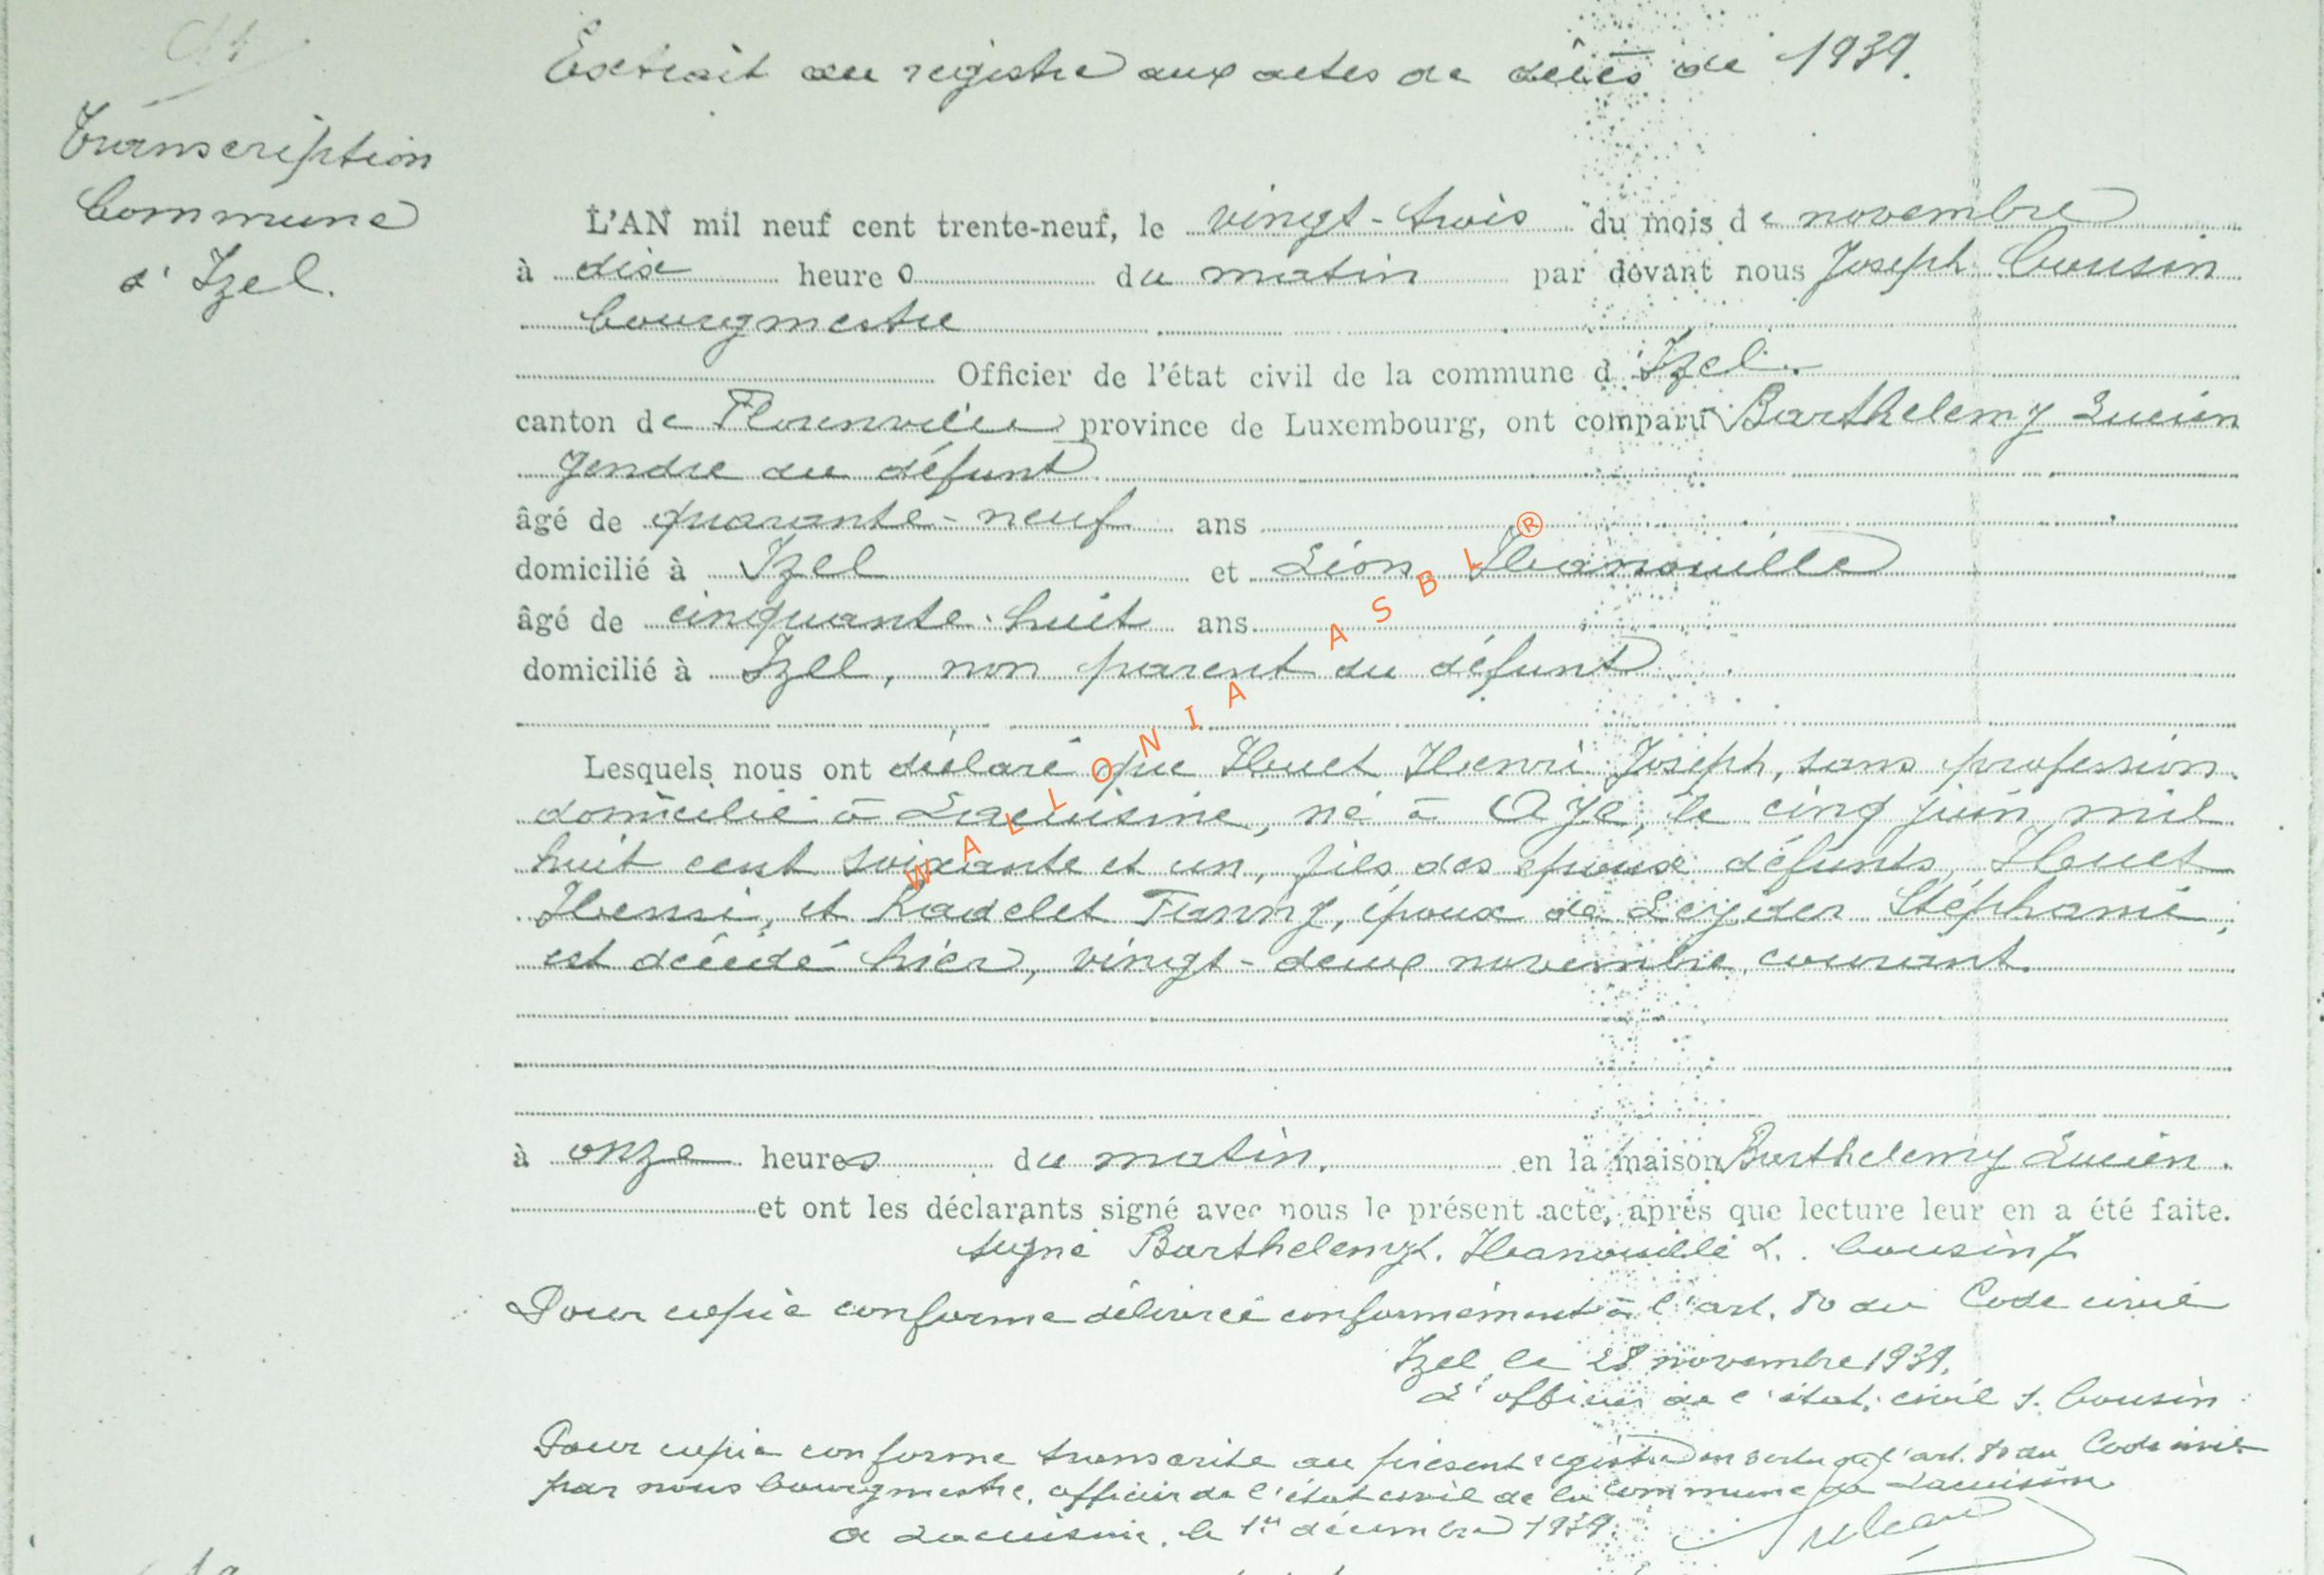 Extrait du registre aux actes de décès de 1939.
Transcription
Commune
d'Izel.
L'AN mil neuf cent trente-neuf, le vingt-trois du mois de novembre
à dix heures du matin par devant nous Joseph Cousin
bourgmestre
Officier de l'état civil de la commune d'Izel.
canton de Florenville province de Luxembourg, ont comparu Barthelemy Lucien
gendre du défunt
âgé de quarante-neuf ans
domicilié à Izel et Léon Hanouille
âgé de cinquante-huit ans
domicilié à Izel, non parent du défunt
Lesquels nous ont déclaré que Huet Henri Joseph, sans profession
domicilié à Lacuisine, né à Aye, le cinq juin mil
huit cent soixante et un, fils des époux défunts Huet
Henri, et Radelet Fanny, époux de Stéphanie,
est décédé hier, vingt-deux novembre courant.
à onze heures du matin. en la maison Barthelemy Lucien.
et ont les déclarants signé avec nous le présent acte, après que lecture leur en a été faite.
signé Barthelemy L. Hanouille L. Cousin J.
Pour copie conforme délivrée conformément à l'art. 80 du Code civil
Izel, le 28 novembre 1939.
L'officier de l'état civil J. Cousin
Pour copie conforme transcrite au présent registre en vertu de l'art. 80 du Code civil
par nous bourgmestre, officier de l'état civil de la commune de Lacuisine
à Lacuisine, le 1er décembre 1939.
WALLONIA ASBL ®